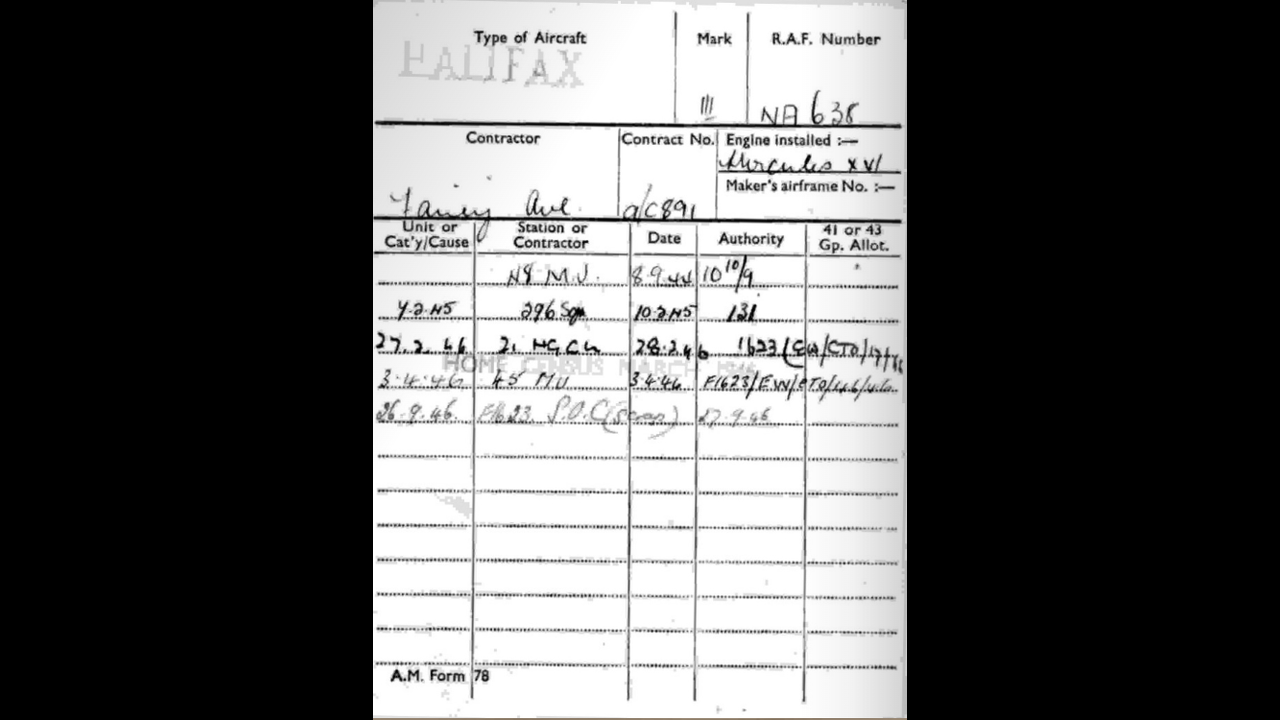 Type of Aircraft Mark R.A.F. Number
HALIFAX
III NA 638
Contractor Contract No. Engine installed :—
Hercules XVI
Maker's airframe No. :—
Fairey Ave. a/C891
Unit or Cat'y/Cause Station or Contractor Date Authority 41 or 43 Gp. Allot.
48 M.U. 8.9.44 10 10/9
4.2.45 296 Sqn 10.2.45 131
27.2.46 21 HGCU 28.2.46 1623/
HOME CENSUS MARCH 1946
3.4.46 45 MU 3.4.46 F1623/EW/
26.9.46 F1623 S.O.C (Scrap) 27.9.46
A.M. Form 78